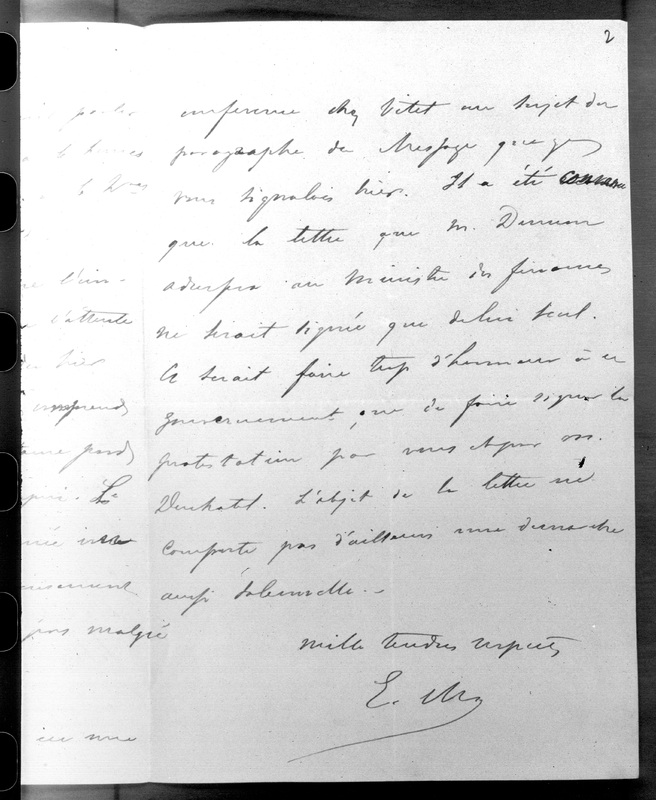 2
conférence chez Vitet au sujet du
paragraphe du Message que je
vous signalais hier. Il a été convenu
que la lettre que M. Dumon
adressera au Ministre des finances
ne serait signée que de lui seul.
Ce serait faire trop d'honneur à ce
gouvernement, que de faire signer la
protestation par vous et par M.
Duchatel. L'objet de la lettre ne
comporte pas d'ailleurs une démarche
aussi solennelle. -
mille tendres respects
E.
parler
l'attente
hier
comprends
malgré
une